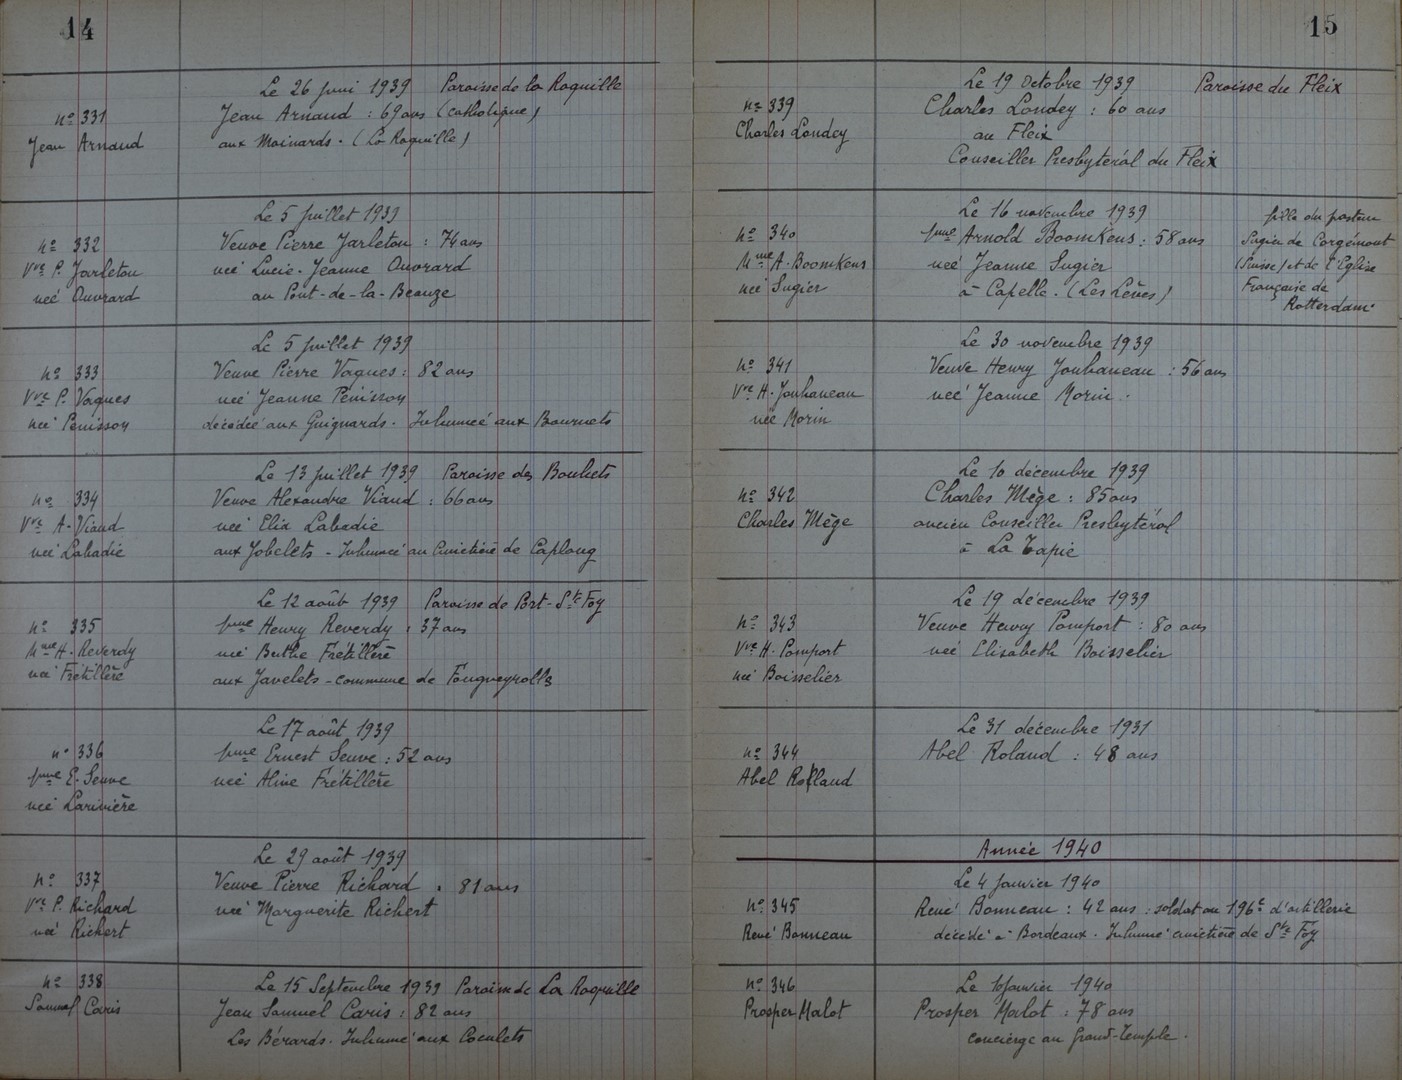 14
Le 26 juin 1939 Paroisse de la Roquille
nº 331
Jean Arnaud : 69 ans (catholique)
Jean Arnaud
aux Moinards. (La Roquille)
Le 5 juillet 1939
nº 332
Veuve Pierre Jarleton : 74 ans
Vve P. Jarleton
née Lucie-Jeanne Ouvrard
née Ouvrard
au Pont-de-la-Beauze
Le 5 juillet 1939
nº 333
Veuve Pierre Vaques : 82 ans
Vve P. Vaques
née Jeanne Pénisson
née Penisson
décédée aux Guignards. Inhumée aux Bournets
Le 13 juillet 1939 Paroisse des Bouhets
nº 334
Veuve Alexandre Viaud : 66 ans
Vve A. Viaud
née Elia Labadie
née Labadie
aux Jobelets - Inhumée au Cimetière de Caplong
Le 12 août 1939 Paroisse de Port-Ste Foy
nº 335
Mme Henry Reverdy : 37 ans
Mme H. Reverdy
née Berthe Frétillère
née Frétillère
aux Javelets - commune de Fougueyrolles
Le 17 août 1939
nº 336
Mme Ernest Seuve : 52 ans
Mme E. Seuve
née Aline Frétillère
née Larivière
Le 29 août 1939
nº 337
Veuve Pierre Richard : 81 ans
Vve P. Richard
née Marguerite Richert
née Richert
nº 338
Le 15 Septembre 1939 Paroisse de La Roquille
Samuel Caris
Jean Samuel Caris : 82 ans
Les Bérards. Inhumé aux Coculets
15
Le 19 Octobre 1939 Paroisse du Fleix
nº 339
Charles Londey : 60 ans
Charles Londey
au Fleix
Conseiller Presbytéral du Fleix
Le 16 novembre 1939
nº 340
Mme Arnold BoomKens : 58 ans
Mme A. BoomKens
née Jeanne Sugier
née Sugier
à Capelle. (Les Lèves)
fille du pasteur
Sugier de Corgémont
(Suisse) et de l'Eglise
Française de
Rotterdam.
Le 30 novembre 1939
nº 341
Veuve Henry Jouhaneau : 56 ans
Vve H. Jouhaneau
née Jeanne Morin.
née Morin
Le 10 décembre 1939
nº 342
Charles Mège : 85 ans
Charles Mège
ancien Conseiller Presbytéral
à La Tapie
Le 19 décembre 1939
nº 343
Veuve Henry Pomport : 80 ans
Vve H. Pomport
née Elisabeth Boisselier
née Boisselier
Le 31 décembre 1931
nº 344
Abel Roland : 48 ans
Abel Rolland
Année 1940
Le 4 Janvier 1940
nº 345
René Bonneau : 42 ans : soldat au 196e d'artillerie
René Bonneau
décédé à Bordeaux. Inhumé cimetière de Ste Foy
nº 346
Le janvier 1940
Prosper Malot
Prosper Malot : 78 ans
concierge au Grand-Temple.